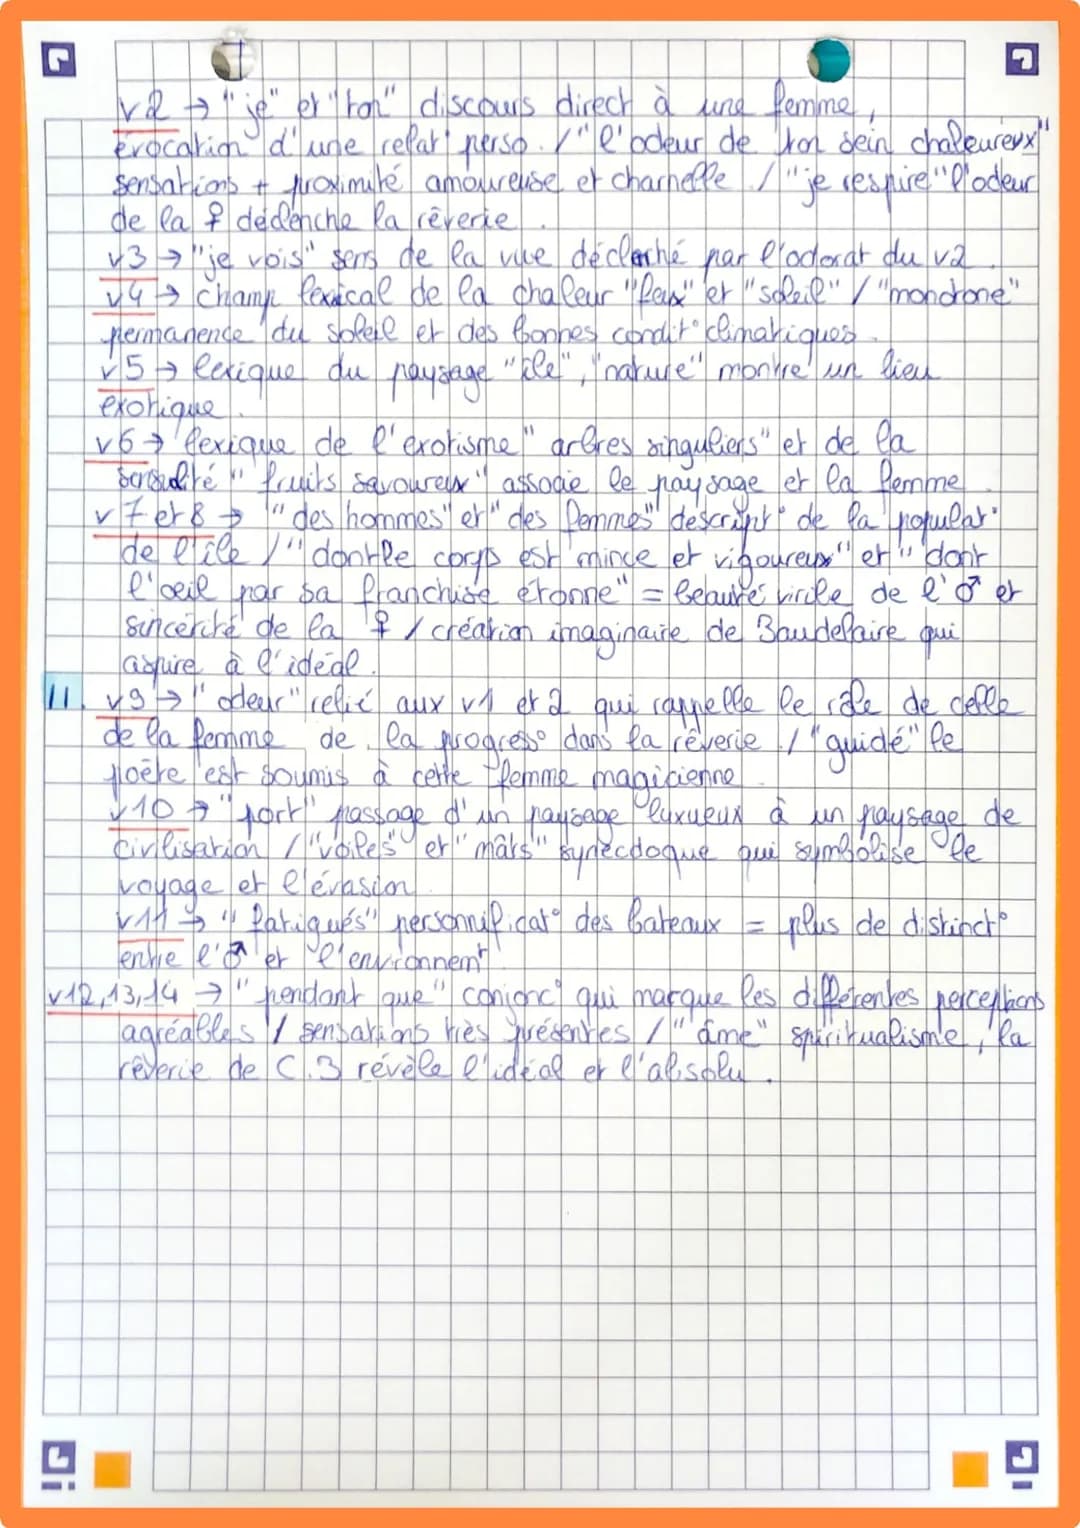 v2 → "je" et "ton" discours direct à une femme,
évocation d'une relat° perso. / "l'odeur de ton sein chaleureux"
sensations + proximité amoureuse et charnelle / "je respire" l'odeur
de la ♀ déclenche la rêverie.
v3 → "je vois" sens de la vue déclenché par l'odorat du v2.
v4 → champ lexical de la chaleur "feux" et "soleil" / "monotone"
permanence du soleil et des bonnes condit° climatiques.
v5 → lexique du paysage "île", "nature" montre un lieu
exotique.
v6 → lexique de l'exotisme "arbres singuliers" et de la
sensualité "fruits savoureux" associe le paysage et la femme.
v7 et 8 → "des hommes" et "des femmes" descript° de la populat°
de l'île / "dont le corps est mince et vigoureux" et "dont
l'oeil par sa franchise étonne" = beauté virile de l'♂ et
sincérité de la ♀ / création imaginaire de Baudelaire qui
aspire à l'idéal.
II. v9 → "odeur" relié aux v1 et 2 qui rappelle le rôle de celle
de la femme de la progress° dans la rêverie. / "guidé" le
poète est soumis à cette femme magicienne.
v10 → "port" passage d'un paysage luxueux à un paysage de
civilisation / "voiles" et "mâts" synecdoque qui symbolise le
voyage et l'évasion.
v11 → "fatigués" personnificat° des bateaux = plus de distinct°
entre l'♂ et l'environnemt.
v12,13,14 → "pendant que" conjonc° qui marque les différentes perceptions
agréables / sensations très présentes / "âme" spiritualisme, la
rêverie de C.B révèle l'idéal et l'absolu.